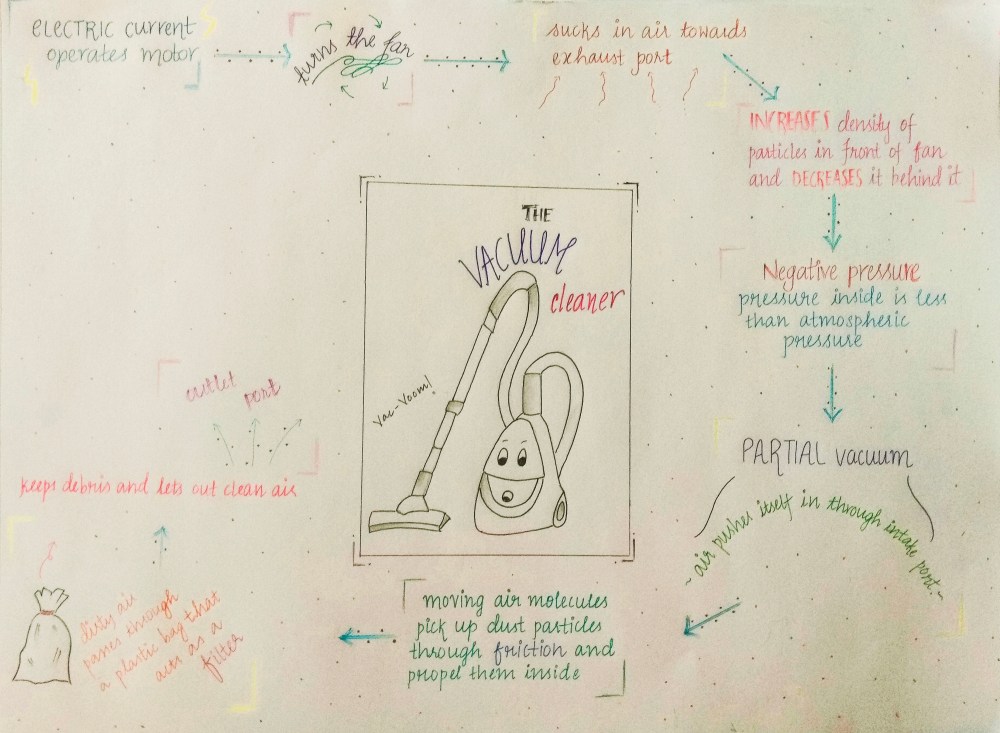 ELECTRIC current
operates motor
turns the fan
sucks in air towards
exhaust port
INCREASES density of
particles in front of fan
and DECREASES it behind it
Negative pressure
pressure inside is less
than atmospheric
pressure
PARTIAL vacuum
~ air pushes itself in through intake port. ~
moving air molecules
pick up dust particles
through friction and
propel them inside
dirty air
passes through
a plastic bag that
acts as a
filter
keeps debris and lets out clean air
outlet port
THE
VACUUM
cleaner
Vac-Voom!